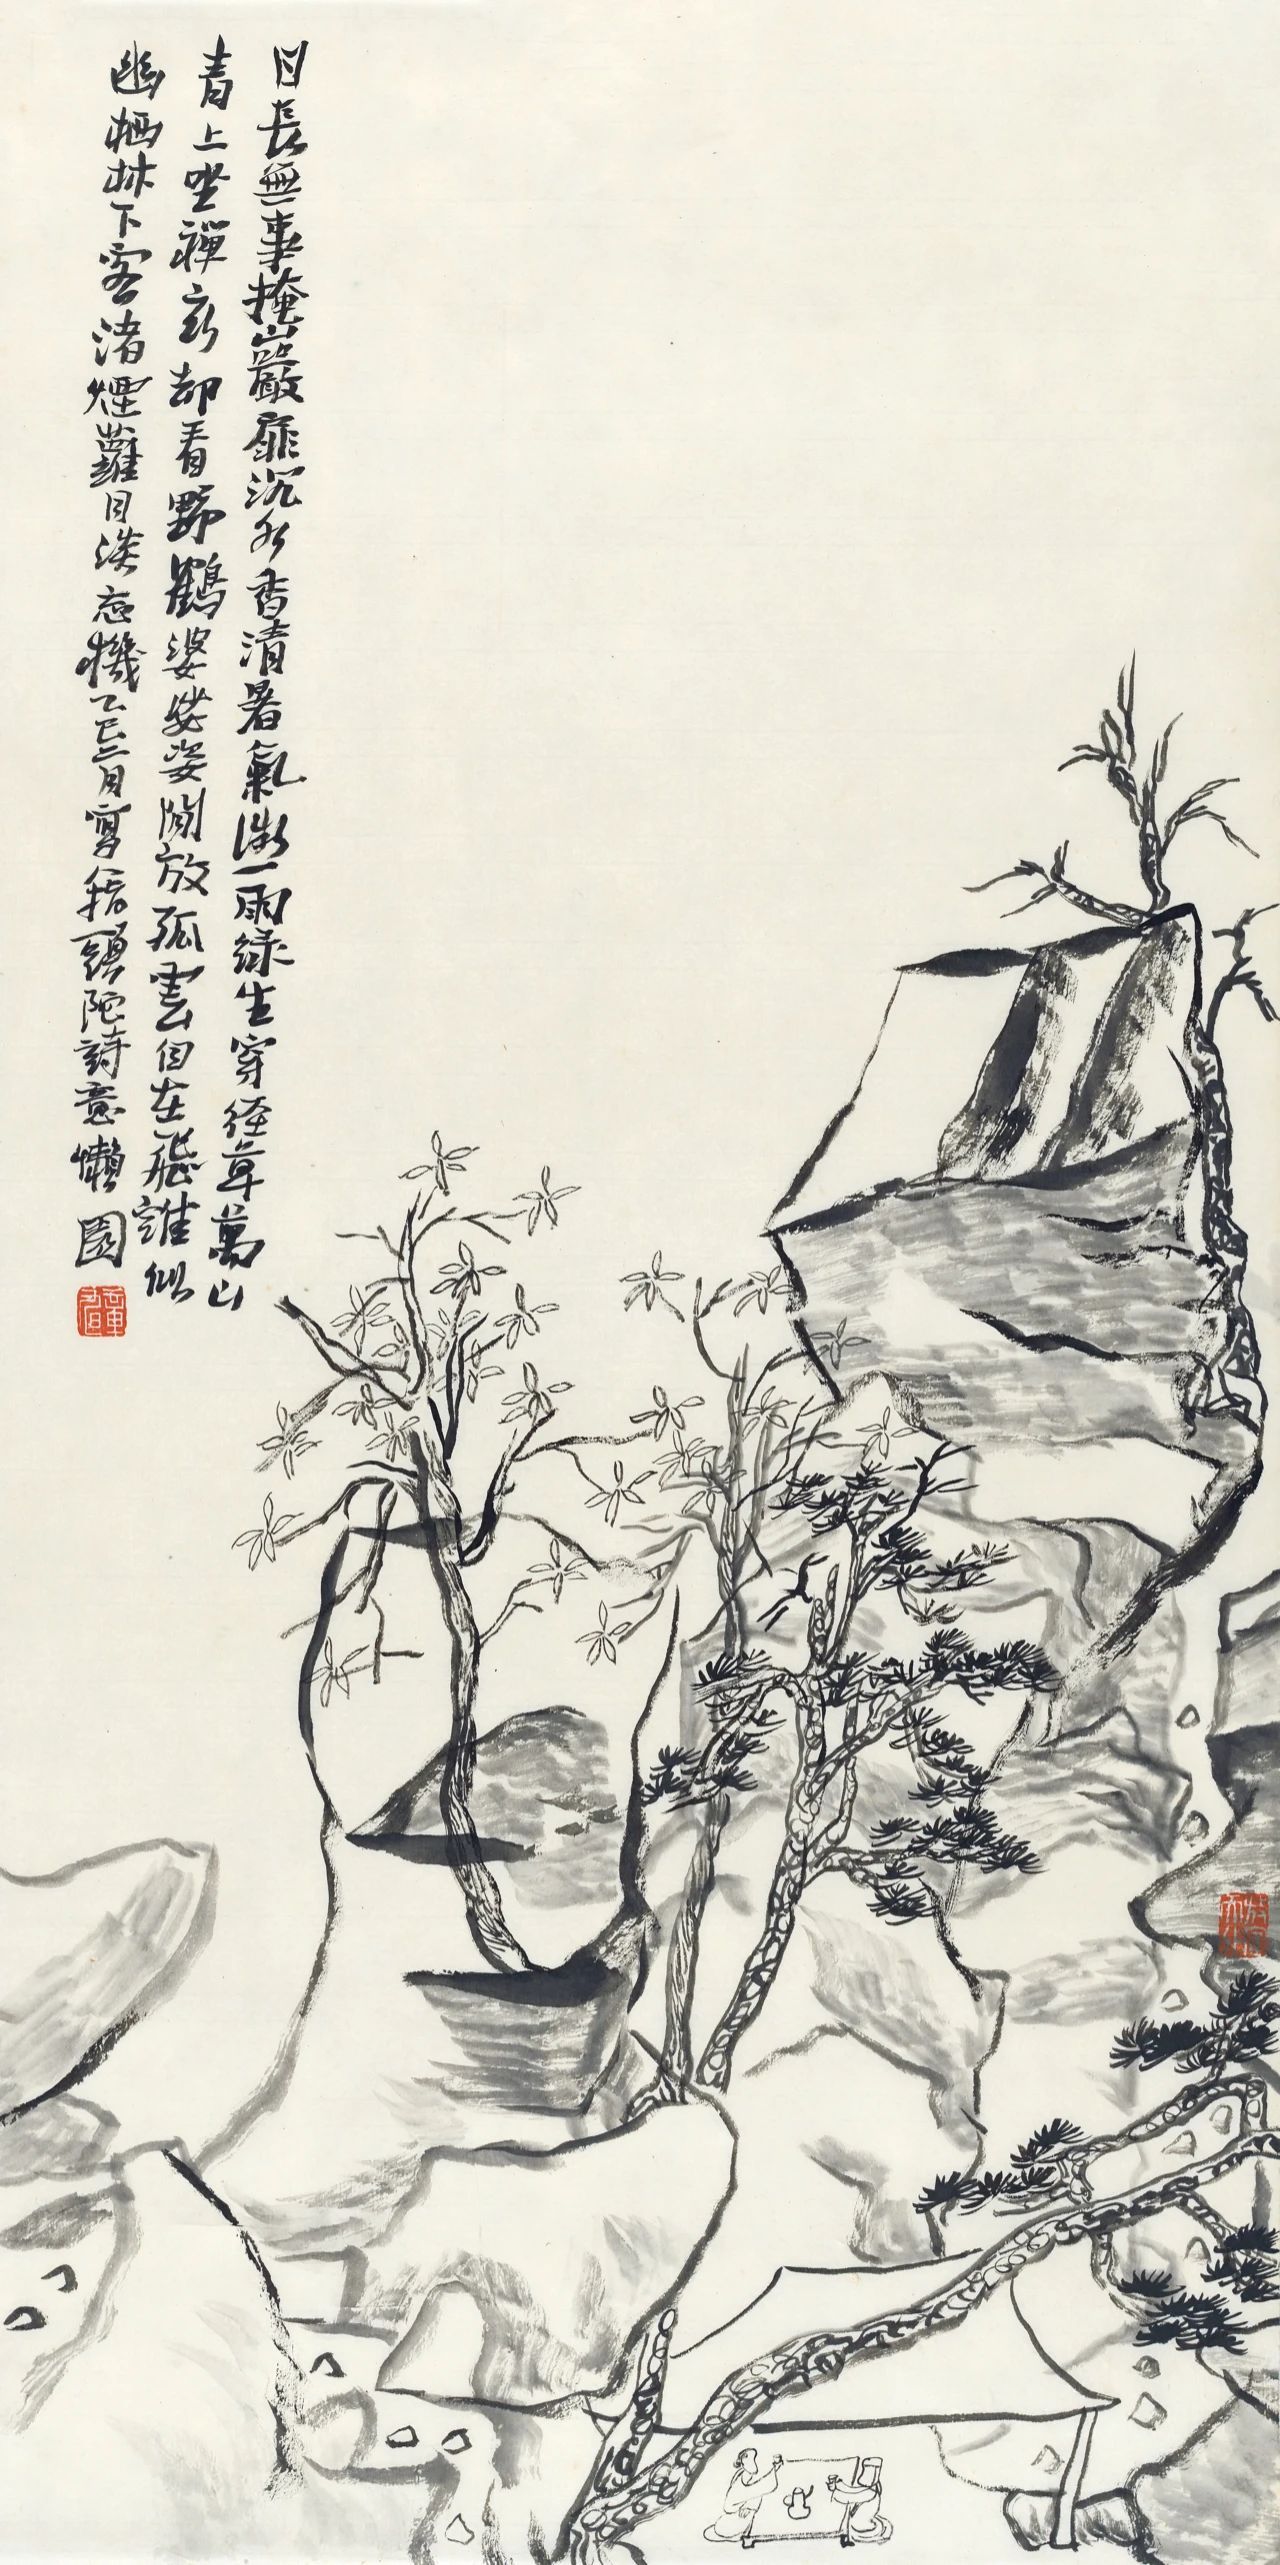 日長無事掩巖扉沉水香清暑氣微一雨綠生穿徑草萬山
青上坐禪衣却看野鶴婆娑姿閒放孤雲自在飛誰似
幽栖林下客渚煙蘿月淡忘機乙巳二月寫頭陀詩意懶園